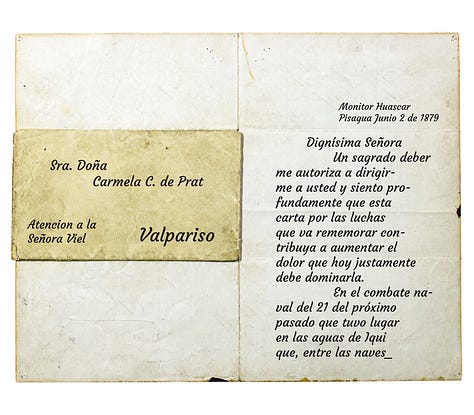 Sra. Doña
Carmela C. de Prat
Atencion a la
Señora Viel
Valpariso
Monitor Huascar
Pisagua Junio 2 de 1879
Dignísima Señora
Un sagrado deber
me autoriza a dirigir-
me a usted y siento pro-
fundamente que esta
carta por las luchas
que va rememorar con-
tribuya a aumentar el
dolor que hoy justamente
debe dominarla.
En el combate na-
val del 21 del próximo
pasado que tuvo lugar
en las aguas de Iqui
que, entre las naves_